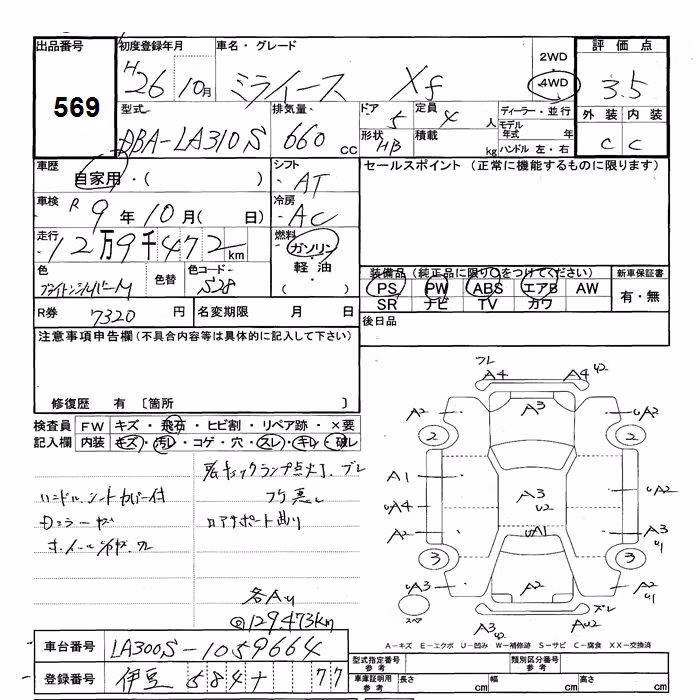 出品番号
569
初度登録年月
H26年10月
車名・グレード
ミライース Xf
2WD
4WD
評価点
3.5
外装 内装
C C
型式
DBA-LA310S
排気量
660 CC
ドア
5
定員
4人
形状
HB
積載
kg
ディーラー・並行
モデル年式 年
ハンドル 左・右
車歴
自家用・( )
シフト
AT
セールスポイント (正常に機能するものに限ります)
車検
R9年10月( 日)
冷房
AC
走行
12万9千472km
燃料
ガソリン・軽油・( )
色
ブライトシルバーM
色替
色コード
S28
装備品 (純正品に限り○をつけてください)
PS PW ABS エアB AW
SR ナビ TV カワ
新車保証書
有・無
R券 7320円
名変期限 月 日
後日品
注意事項申告欄 (不具合内容等は具体的に記入して下さい)
修復歴 有 〔箇所
検査員記入欄
FW キズ・飛石・ヒビ割・リペア跡・×要
内装 キズ・汚レ・コゲ・穴・スレ・キレ・破レ
ハンドル、シートカバー付
ホイール
エンジンチェックランプ点灯
コアサポート曲り
各AU
@129.473km
フレ
A4 A4 U2
A2 A3 UA2
2 2
A1 A3 U2 UA2
UA4
A2 UA1 A3 U1
3 3
UA3 A2 UA2 U1
スペア
A3 U2 AU2
A-キズ E-エクボ U-凹み W-補修跡 S-サビ C-腐食 XX-交換済
車台番号 LA300S-1059664
登録番号 伊豆 584 77
型式指定番号 参考
類別区分番号 参考
車庫証明用 参考
長さ cm
幅 cm
高さ cm